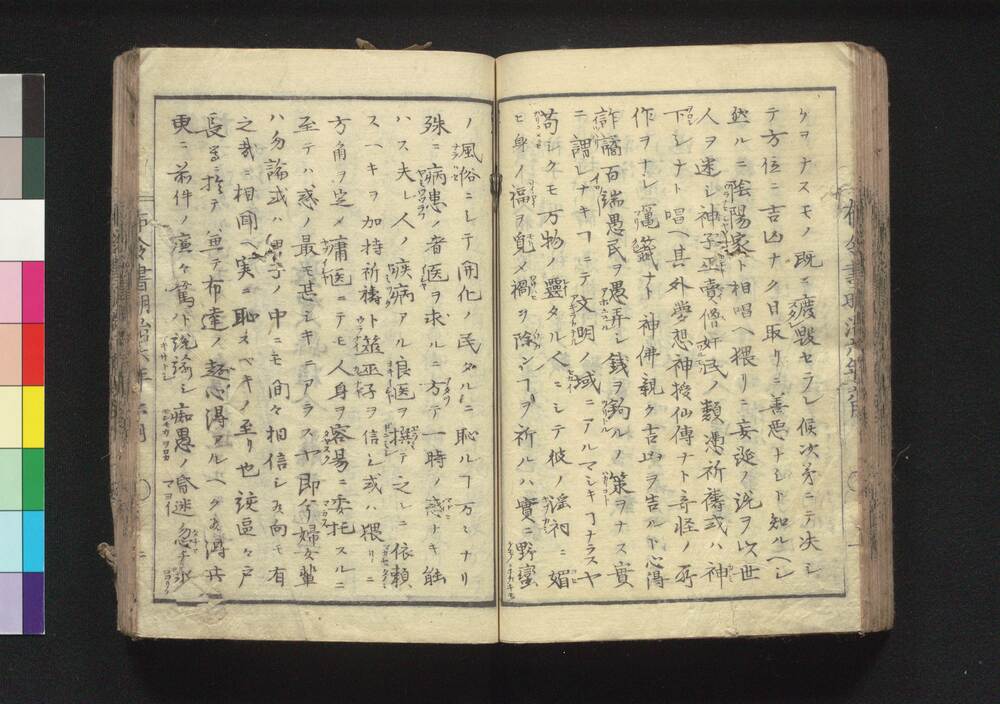 ケヲナスモノ既ニ廃毀セラレ候次第ニテ決シ
テ方位ニ吉凶ナク日取リニ善悪ナシト知ルヘシ
然ルニ陰陽家ト相唱ヘ猥リニ妄誕ノ説ヲ以世
人ヲ迷シ神子巫売僧奸民ノ類憑祈祷或ハ神
下シナト唱ヘ其外夢想神授仙傳ナト奇怪ノ所
作ヲナシ 籤ナト神佛親ク吉凶ヲ告ルト心得
詐譎百端愚民ヲ愚弄シ銭ヲ釣ルノ策ヲナス實
ニ謂レナキヿニテ文明ノ域ニアルマシキヿナラスヤ
苟シクモ万物ノ靈タル人ニシテ彼ノ淫祠ニ媚
ヒ身ノ福ヲ覓メ禍ヲ除ンヿヲ祈ルハ實ニ野蛮
ノ風俗ニシテ開化ノ民タルニ恥ルヿ万々ナリ
殊ニ病患ノ者医ヲ求ルニ方テ一時ノ惑トキ能
ハス夫レ人ノ疾病アル良医ヲ撰テ之レニ依頼
スヘキヲ加持祈祷ト巫子ヲ信シ或ハ猥リニ
方角ヲ定メ庸医ニテモ人身ヲ容易ニ委托スルニ
至テハ惑ノ最モ甚シキニアラスヤ即今婦女輩
ハ勿論或ハ男子ノ中ニモ間々相信シ候向モ有
之哉ニ相聞ヘ実ニ恥スベキノ至リ也 区々戸
長等ニ於テ兼テ布達ノ趣心得アルヘク候得共
更ニ前件ノ 々篤ト説諭シ痴愚ノ昏迷忽チ氷
布令書明治六年
布令書明治六年